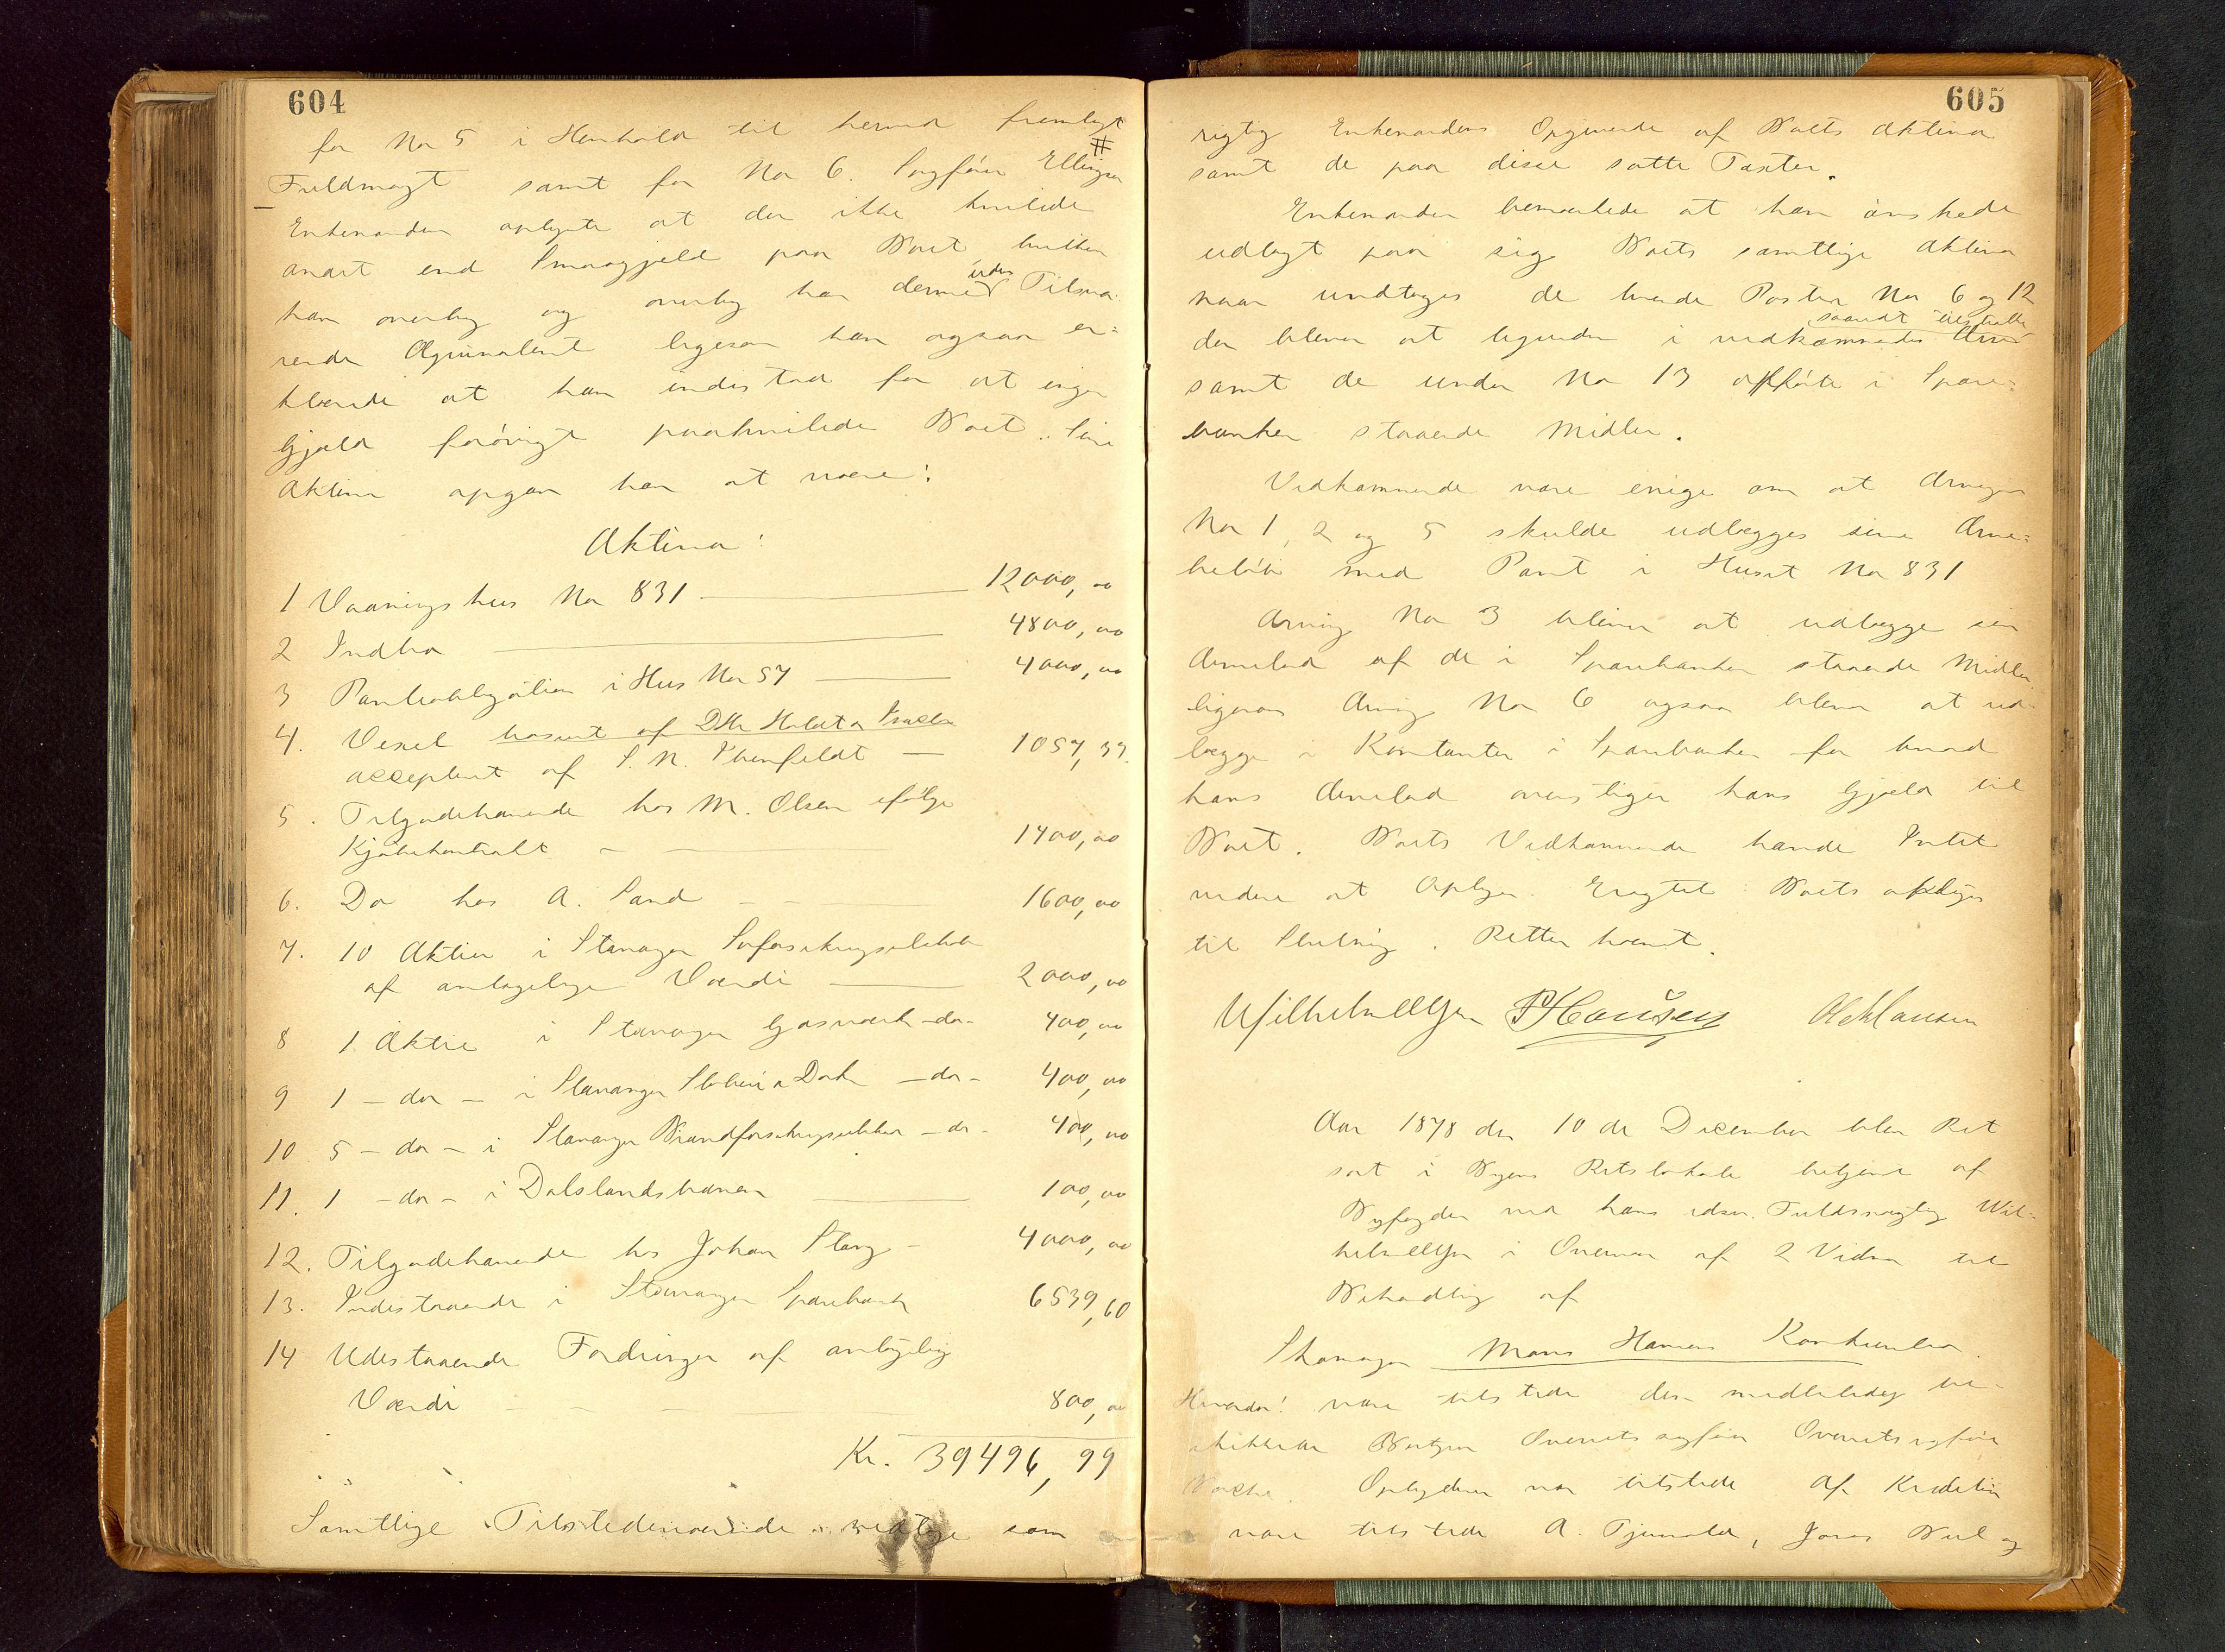 604
for No 5 i Henhold til herved fremlagt
Fuldmagt samt for No 6. Sagfører Ellingsen
Enkemanden oplyste at der ikke hvilede
andet end Smaagjæld paa Boet hvilken
han overtog og overtog han denne uden Tilsva-
rende Æquivalent ligesom han ogsaa er-
klærede at han indestod for at ingen
Gjæld forøvrigt paahvilede Boet. Sine
Aktiva opgav han at være:
Aktiva:
1 Vaaningshus No 831 12000,00
2 Indbo 4800,00
3 Panteobligation i Hus No 57 4000,00
4. Vexel
acceptert af S. N. 1057,39.
5. Tilgodehavende hos M. Olsen ifølge
Kjøbekontrakt 1400,00
6. Do hos A. Sand 1600,00
7. 10 Aktier i Stavanger Søforsikringsselskab
af antagelige Værdi 2000,00
8 1 Aktie i Stavanger Gasværk -do- 400,00
9 1 -do- i Stavanger Støberi & Dok -do- 400,00
10 5 -do- i Stavanger Brandforsikringsselskab -do- 400,00
11. 1 -do- i Dalslandsbanen 100,00
12. Tilgodehavende hos Johan Stang 4000,00
13. Indestaaende i Stavanger Sparebank 6539,60
14 Udestaaende Fordringer af antagelig
Værdi 800,00
Kr. 39496,99
Samtlige Tilstedeværende vedtoge som
605
rigtig Enkemandens Opgivende af Boets Aktiva
samt de paa disse satte Taxter.
Enkemanden bemærkede at han ønskede
udlagt paa sig Boets samtlige Aktiva
naar undtages de tvende Poster No 6 og 12
saavidt tilstrækk
der bliver at ligvidere i vedkommendes Arv
samt de under No 13 opførte i Spare-
banken staaende Midler.
Vedkommende vare enige om at Arvinger
No 1, 2 og 5 skulde udlægges sine Arve-
beløb med Pant i Huset No 831
Arving No 3 bliver at udlægge sin
Arvelod af de i Sparebanken staaende Midler
ligesom Arving No 6 ogsaa bliver at ud-
lægge i Kontanter i Sparebanken for hvad
hans Arvelod overstiger hans Gjæld til
Boet. Boets Vedkommende havde Intet
videre at Oplyse. Eragtet: Boets optages
til Slutning. Retten hævet.
Wilhelm Ellgen P Hansen Ole Hansen
Aar 1878 den 10 de December blev Ret
sat i Byens Retslokale betjent af
Byfogden ved hans edsv. Fuldmægtig Wil-
helm Ellgen i Overvær af 2 Vidner til
Behandling af
Skomager Mons Hansens Konkursbo.
Hvorda: var tilstede den midlertidig be-
skikkede Bestyrer Overretssagfører Overretssagfører
Boche. Opbyderen var tilstede Af Kreditor
vare tilstede A. Tjemsland, Jonas Bull og